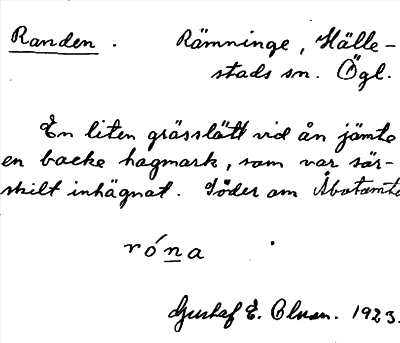 Randen. Rämninge, Hälle-
stads sn. Ögl.
En liten grässlätt vid ån jämte
en backe hagmark, som var sär-
skilt inhägnat. Söder om
róna
Gustaf E. 1923.